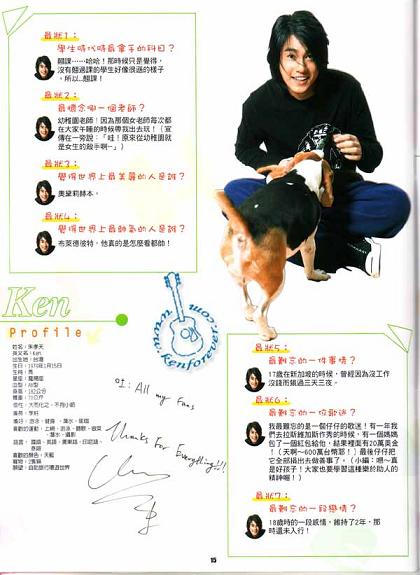 最狀1：
學生時代時最拿手的科目？
翹課……哈哈！那時候只是覺得，
沒有翹過課的學生好像很遜的樣子
，所以…翹課！
最狀2：
最懷念哪一個老師？
幼稚園老師！因為那個女老師每次都
在大家午睡的時候帶我出去玩！（宣
傳在一旁說：「哇！原來從幼稚園就
是女生的殺手啊~」）
最狀3：
覺得世界上最美麗的人是誰？
奧黛莉赫本。
最狀4：
覺得世界上最帥氣的人是誰？
布萊德彼特，他真的是怎麼看都帥！
Ken
Profile
姓名：朱孝天
英文名：Ken
出生地：台灣
生日：1979年1月15日
星座：魔羯座
血型：AB型
身高：182公分
體重：70公斤
www.kenforever.com
All my Fans
Thanks For Everything!!!
最狀5：
最難忘的一件事情？
17歲在新加坡的時候，曾經因為沒工作
沒錢而餓過三天三夜。
最狀6：
最難忘的一個歌迷？
我最難忘的是一個仔仔的歌迷！有一年我
們去拉斯維加斯作秀的時候，有一個媽媽
包了一個紅包給他，結果裡面有20萬美金
！（天啊～600萬台幣耶！）最後仔仔把
它全部捐出去做善事了。（小編：嗯～真
是好孩子！大家也要學習這種樂於助人的
精神喔！）
最狀7：
最難忘的一段戀情？
18歲時的一段感情，維持了2年，那
時還未入行！
15